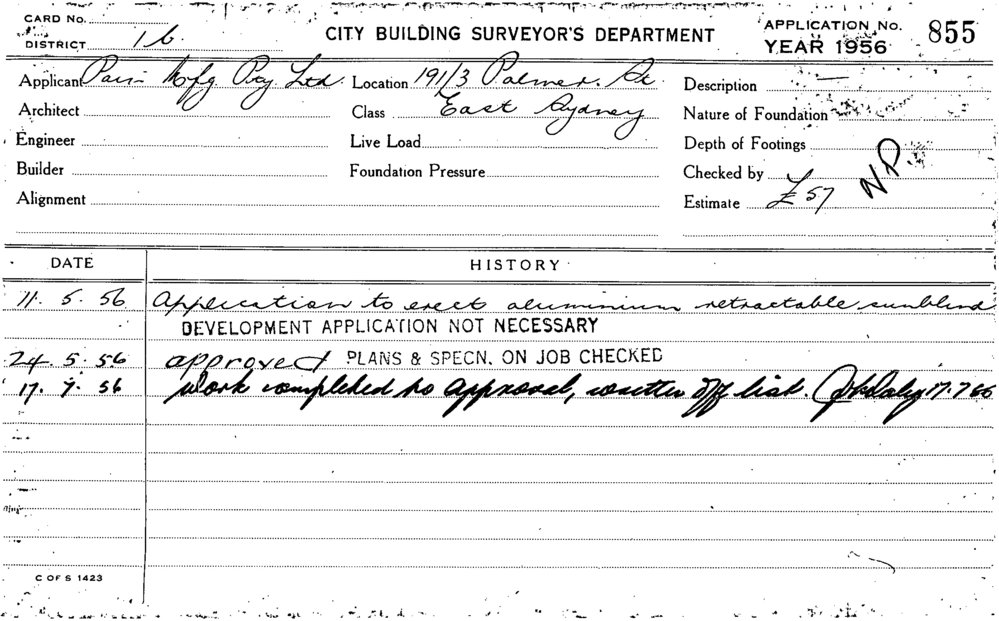 CARD No.
DISTRICT 16
CITY BUILDING SURVEYOR'S DEPARTMENT
APPLICATION No. 855
YEAR 1956
Applicant Mfg Pty Ltd.
Location 191/3 Palmer St.
Description —
Architect
Class East Sydney
Nature of Foundation
Engineer
Live Load
Depth of Footings
Builder
Foundation Pressure
Checked by
N.D.
Alignment
Estimate £57
DATE
HISTORY
11. 5. 56 Application to erect aluminium retractable sunblind
DEVELOPMENT APPLICATION NOT NECESSARY
24. 5. 56 approved PLANS & SPECN. ON JOB CHECKED
17. 7. 56 Work completed to approval, written off list. 17.7.56
C OF S 1423